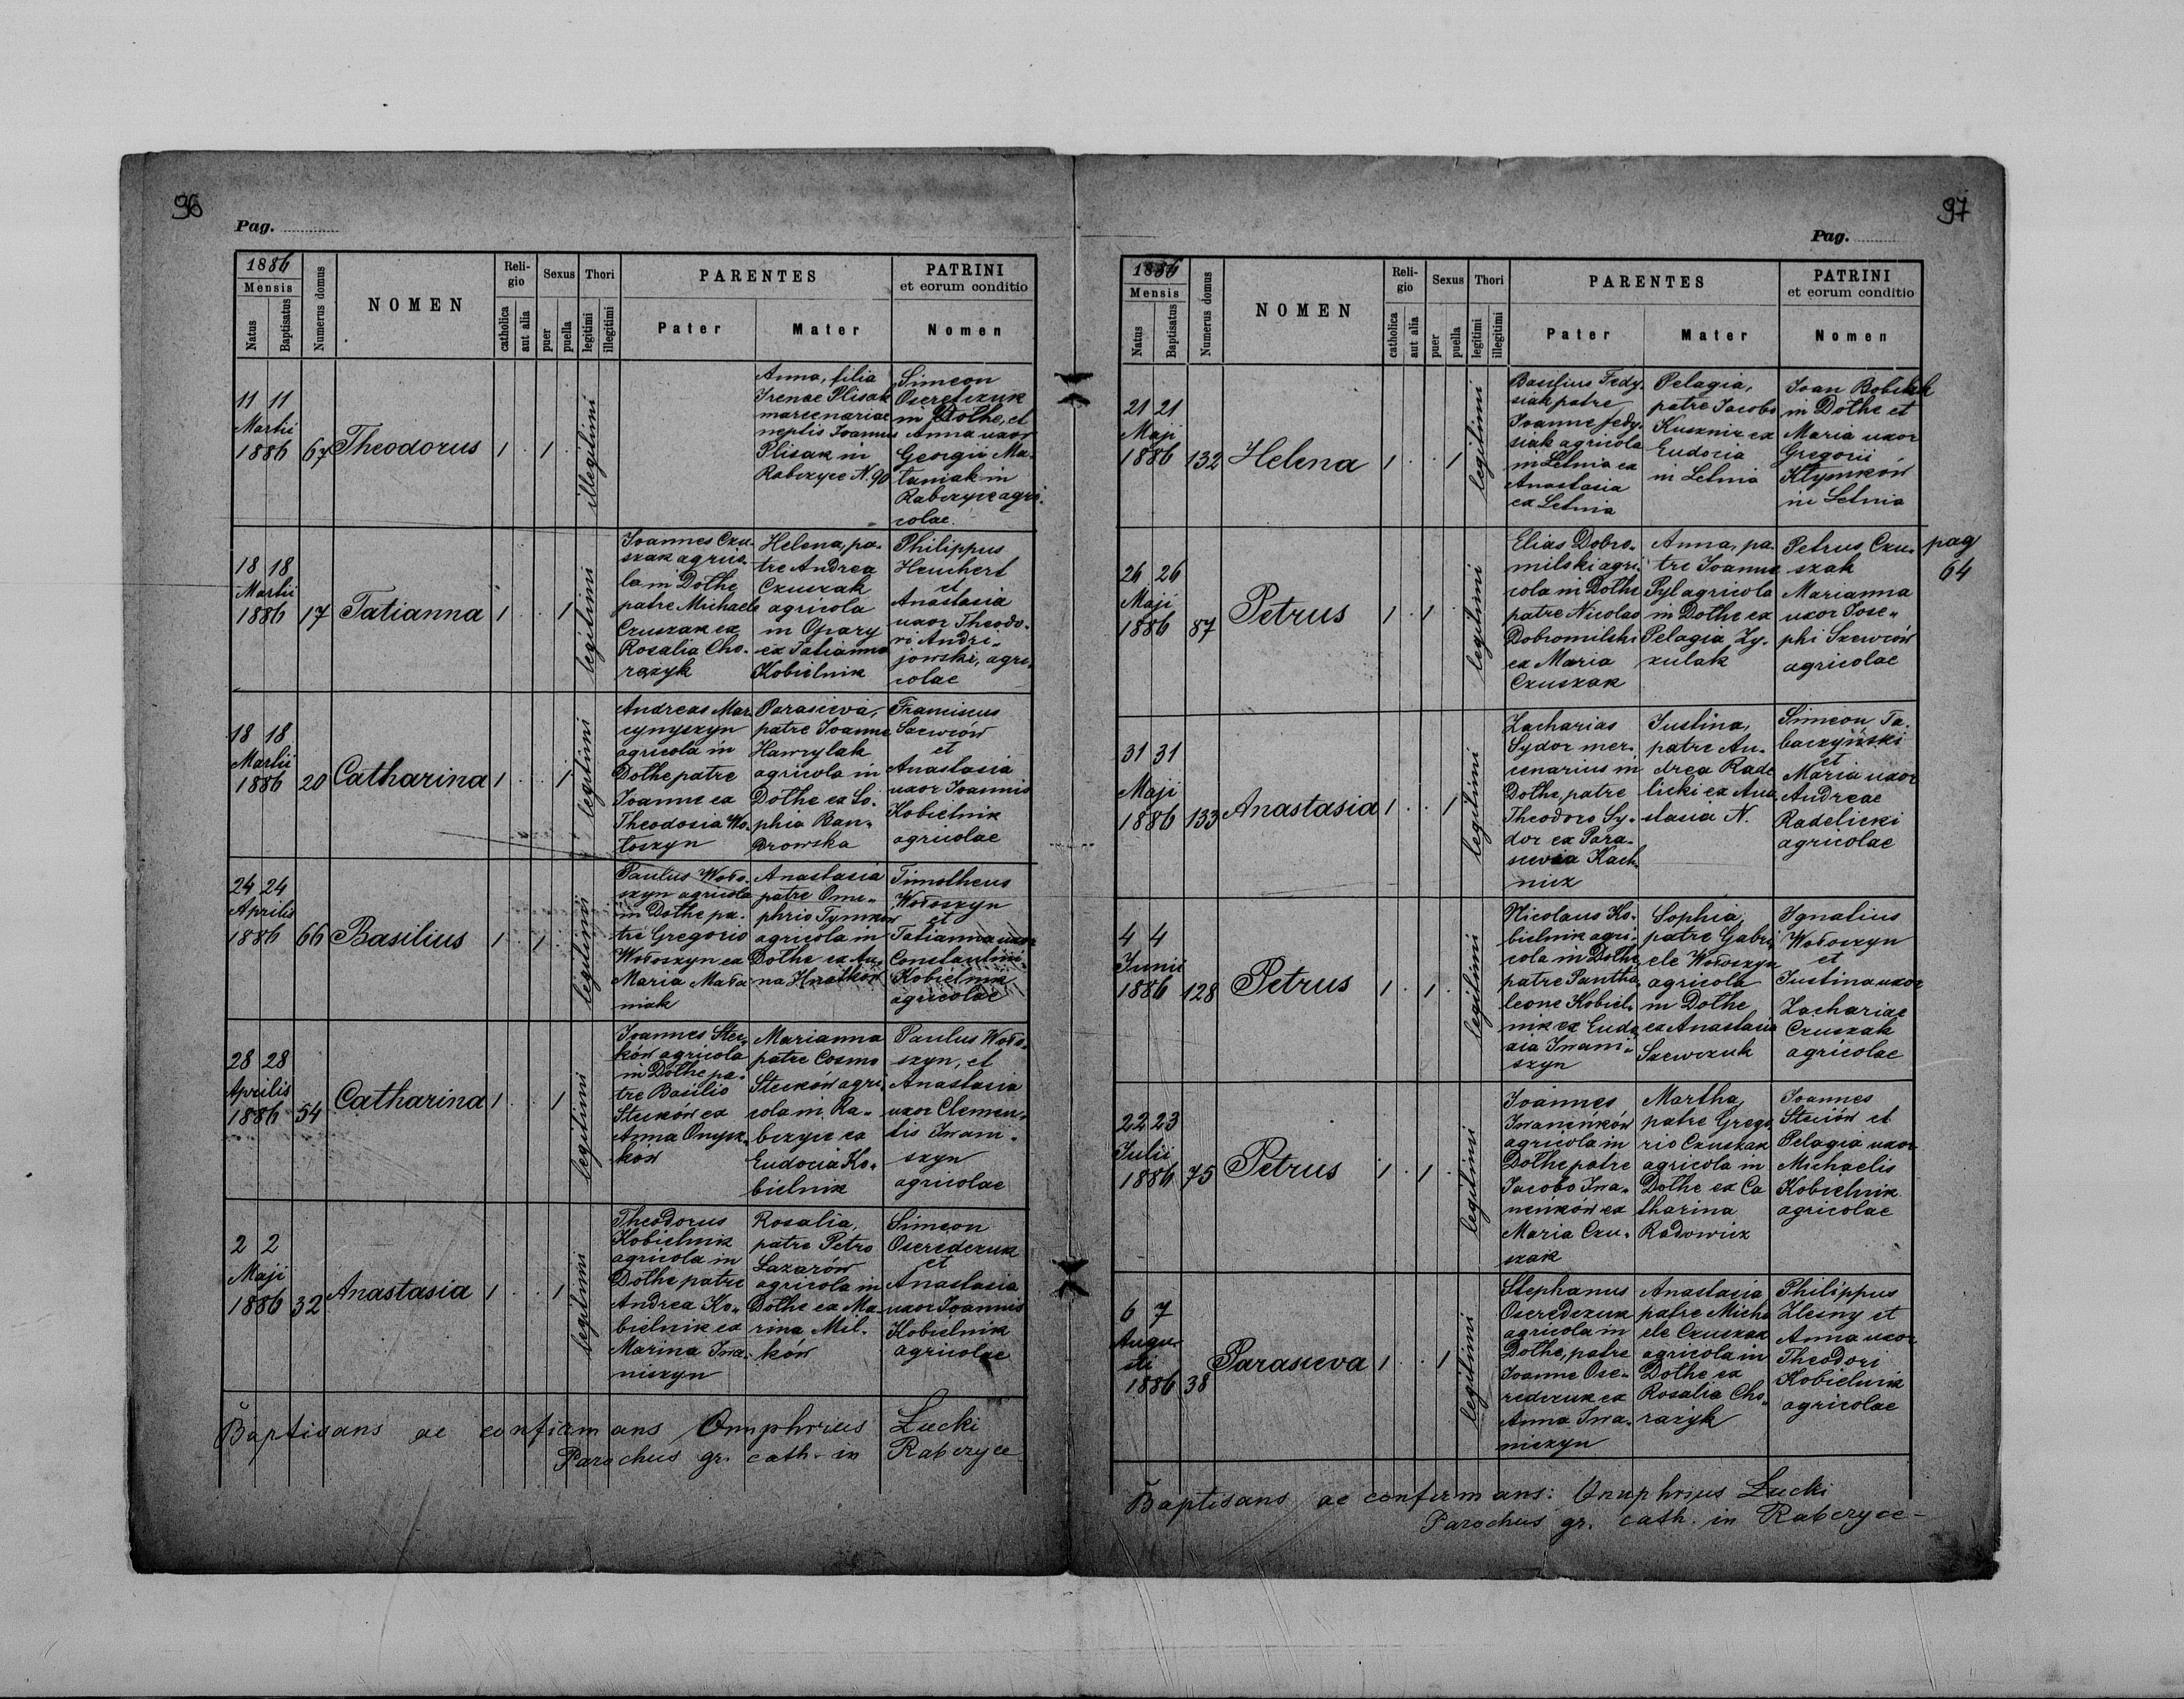 96
Pag.
1886
Mensis
Natus
Baptisatus
Numerus domus
NOMEN
Reli-
gio
catholica
aut alia
Sexus
puer
puella
Thori
legitimi
illegitimi
PARENTES
Pater
Mater
PATRINI
et eorum conditio
Nomen
11 11
Martii
1886
67
Theodorus
1 . 1 .
illegitimi
Anna, filia
Irenae Plisak
mercenariae
neptis Joannis
Plisak in
Rabczyce N. 90
Simeon
Oseredczuk
in Dołhe, et
Anna uxor
Georgii Ma-
tuniak in
Rabczyce agri-
colae.
18 18
Martii
1886
17
Tatianna
1 . . 1
legitimi
Joannes Czu-
szak agrico-
la in Dołhe
patre Michaele
Czuszak ex
Rosalia Cho-
rązyk
Helena, pa-
tre Andrea
Czuszak
agricola
in Opary
ex Tatianna
Kobielnik
Philippus
Heuchert
et
Anastasia
uxor Theodo-
ri Andri-
jowski, agri-
colae
18 18
Martii
1886
20
Catharina
1 . . 1
legitimi
Andreas Mar-
cynyszyn
agricola in
Dołhe patre
Joanne ex
Theodosia Wo-
łoszyn
Parasceva,
patre Joanne
Hawrylak
agricola in
Dołhe ex So-
phia Ban-
drowska
Franciscus
Szewców
et
Anastasia
uxor Joannis
Kobielnik
agricolae
24 24
Aprilis
1886
66
Basilius
1 . 1 .
legitimi
Paulus Woło-
szyn agricola
in Dołhe pa-
tre Gregorio
Wołoszyn ex
Maria Mała-
niak
Anastasia
patre Onu-
phrio Tymków
agricola in
Dołhe ex An-
na Hnatków
Timotheus
Wołoszyn
et
Tatianna uxor
Constantini
Kobielnik
agricolae
28 28
Aprilis
1886
54
Catharina
1 . . 1
legitimi
Joannes Stec-
ków agricola
in Dołhe pa-
tre Basilio
Stecków ex
Anna Onysz-
ków
Marianna
patre Cosmo
Stecków agri-
cola in Ra-
bczyce ex
Eudocia Ko-
bielnik
Paulus Woło-
szyn, et
Anastasia
uxor Clemen-
tis Iwani-
szyn
agricolae
2 2
Maji
1886
32
Anastasia
1 . . 1
legitimi
Theodorus
Kobielnik
agricola in
Dołhe patre
Andrea Ko-
bielnik ex
Marina Iwa-
niszyn
Rosalia,
patre Petro
Lazarów
agricola in
Dołhe ex Ma-
rina Mil-
ków
Simeon
Oseredczuk
et
Anastasia
uxor Joannis
Kobielnik
agricolae
Baptisans ac confirmans Onuphrius Łucki
Parochus gr. cath. in Rabczyce
97
Pag.
1886
Mensis
Natus
Baptisatus
Numerus domus
NOMEN
Reli-
gio
catholica
aut alia
Sexus
puer
puella
Thori
legitimi
illegitimi
PARENTES
Pater
Mater
PATRINI
et eorum conditio
Nomen
21 21
Maji
1886
132
Helena
1 . . 1
legitimi
Basilius Fedy-
siak patre
Joanne Fedy-
siak agricola
in Letnia ex
Anastasia
ex Letnia
Pelagia,
patre Jacobo
Kusznir ex
Eudocia
in Letnia
Joan
in Dołhe et
Maria uxor
Gregorii
Kłymków
in Letnia
26 26
Maji
1886
87
Petrus
1 . 1 .
legitimi
Elias Dobro-
milski agri-
cola in Dołhe
patre Nicolao
Dobromilski
ex Maria
Czuszak
Anna, pa-
tre Joanne
Pyl agricola
in Dołhe ex
Pelagia Zy-
zulak
Petrus Czu-
szak
Marianna
uxor Jose-
phi Szewców
agricolae
pag
64
31 31
Maji
1886
133
Anastasia
1 . . 1
legitimi
Zacharias
Sydor mer-
cenarius in
Dołhe, patre
Theodoro Sy-
dor ex Para-
scevia Kach-
nicz
Justina,
patre An-
drea Rade-
licki ex Ana-
stasia N.
Simeon Ta-
baczyński
et
Maria uxor
Andreae
Radelicki
agricolae
4 4
Junii
1886
128
Petrus
1 . 1 .
legitimi
Nicolaus Ko-
bielnik agri-
cola in Dołhe
patre Pantha-
leone Kobiel-
nik ex Eudo-
xia Iwani-
szyn
Sophia,
patre Gabri-
ele Wołoszyn
agricola
in Dołhe
ex Anastasia
Szewczuk
Ignatius
Wołoszyn
et
Justina uxor
Zachariae
Czuszak
agricolae
22 23
Julii
1886
75
Petrus
1 . 1 .
legitimi
Joannes
Iwanenków
agricola in
Dołhe patre
Jacobo Iwa-
nenków ex
Maria Czu-
szak
Martha,
patre Grego-
rio Czuszak
agricola in
Dołhe ex Ca-
tharina
Radowicz
Joannes
Steciów et
Pelagia uxor
Michaelis
Kobielnik
agricolae
6 7
Augu-
sti
1886
38
Parasceva
1 . . 1
legitimi
Stephanus
Oseredczuk
agricola in
Dołhe, patre
Joanne Ose-
redczuk ex
Anna Iwa-
niszyn
Anastasia
patre Micha-
ele Czuszak
agricola in
Dołhe ex
Rosalia Cho-
rązyk
Philippus
Zlesny et
Anna uxor
Theodori
Kobielnik
agricolae
Baptisans ac confirmans: Onuphrius Łucki
Parochus gr. cath. in Rabczyce-